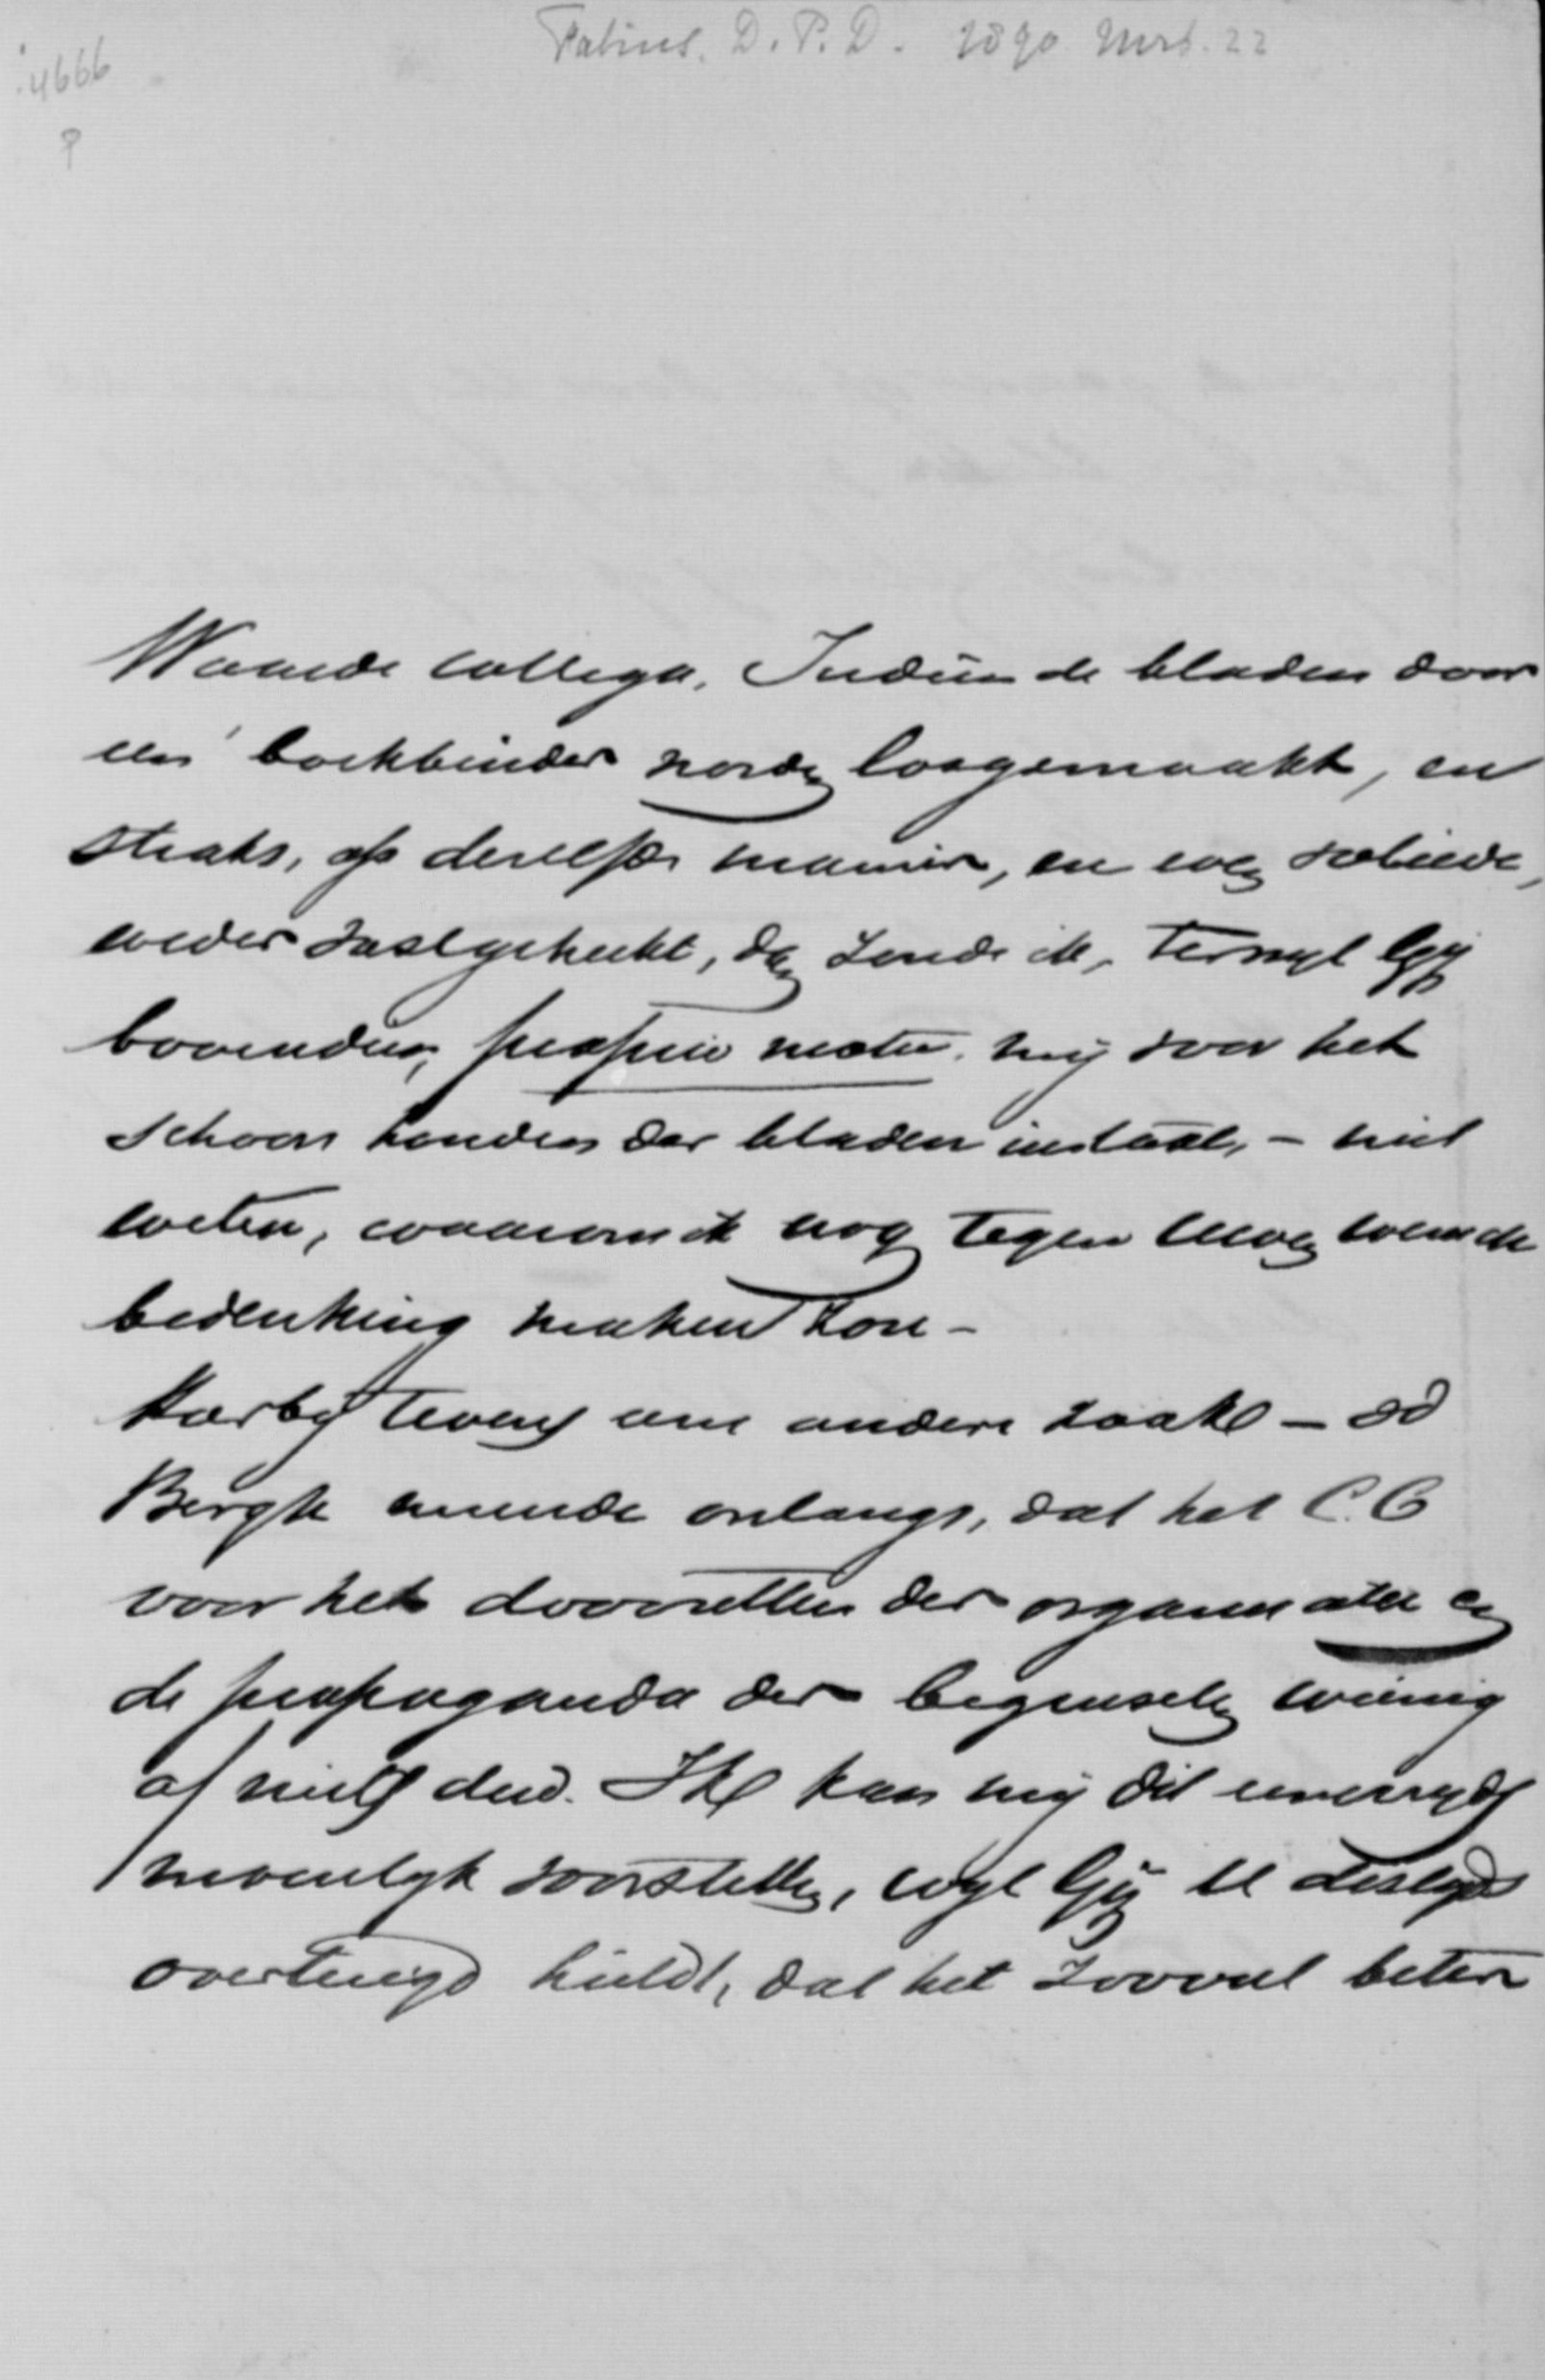 Fabius. D. P. D. 1890 Mrt. 22
4666
P
Waarde Collega. Indien de bladen door
een boekbinder worden losgemaakt, en
straks, op dezelfde manier, en even solide,
weder vastgehecht, dan zoude ik, terwyl Gij
bovendien, proprio motu, mij voor het
schoon houden der bladen instaat, - niet
weten, waarom ik nog tegen Uwen wensch
bedenking maken zou -
Hierbij tevens eene andere zaak -
Bergh meende onlangs, dat het C. C
voor het doorzetten der organisatie en
de propaganda der beginselen weinig
of niets deed. Ik kan mij dit eenerzyds
moeielyk voorstellen, wyl Gij U destyds
overtuigd hieldt, dat het zooveel beter